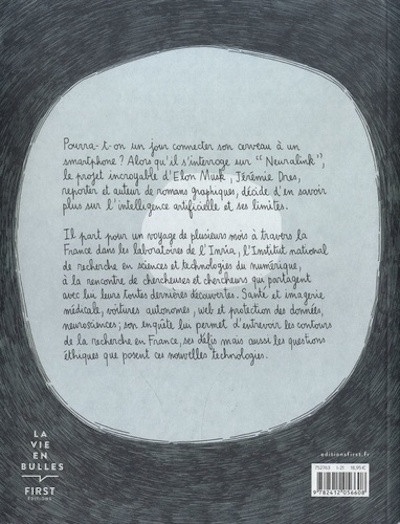 Pourra-t-on un jour connecter son cerveau à un
smartphone ? Alors qu'il s'interroge sur "Neuralink",
le projet incroyable d'Elon Musk, Jérémie Dres,
reporter et auteur de romans graphiques, décide d'en savoir
plus sur l'intelligence artificielle et ses limites.
Il part pour un voyage de plusieurs mois à travers la
France dans les laboratoires de l'Inria, l'Institut national
de recherche en sciences et technologies du numérique,
à la rencontre de chercheuses et chercheurs qui partagent
avec lui leurs toutes dernières découvertes. Santé et imagerie
médicale, voitures autonomes, web et protection des données,
neurosciences ; son enquête lui permet d'entrevoir les contours
de la recherche en France, ses défis mais aussi les questions
éthiques que posent ces nouvelles technologies.
LA
VIE
EN
BULLES
FIRST
Éditions
editionsfirst.fr
9 782412 056608